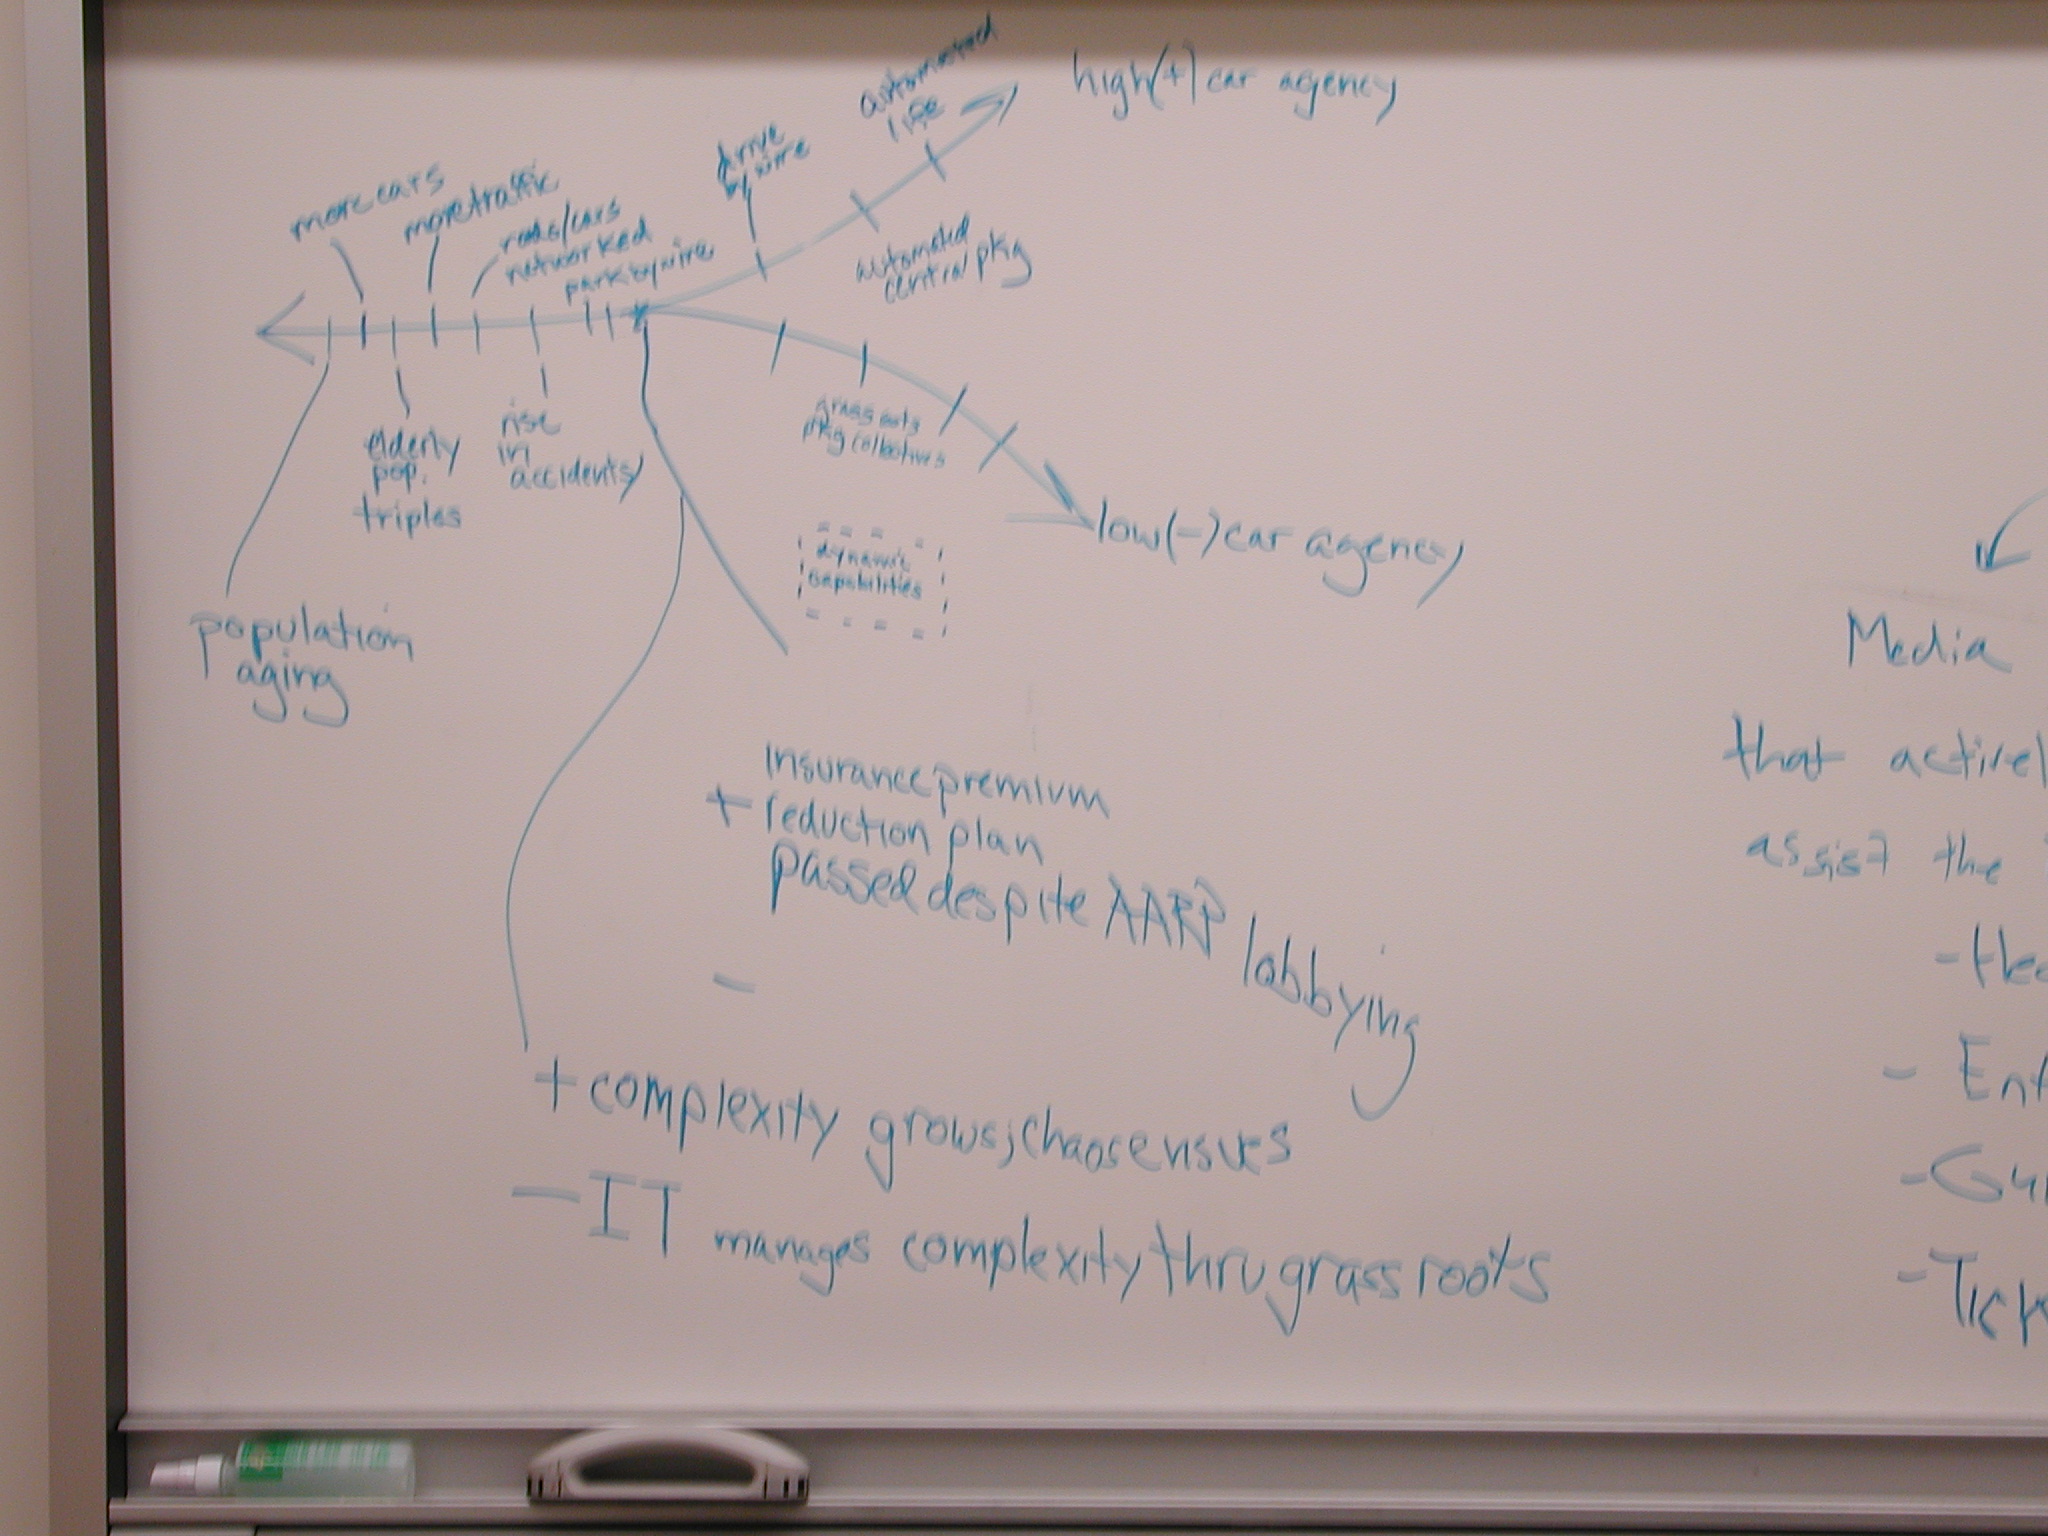 automated
life
high(+) car agency
drive
by wire
more cars
more traffic
roads/cars
networked
park by wire
automated
central pkg
elderly
pop.
triples
rise
in
accidents
grassroots
pkg collectives
low(-) car agency
dynamic
capabilities
population
aging
insurance premium
+ reduction plan
passed despite AARP lobbying
-
+ complexity grows; chaos ensues
- IT manages complexity thru grass roots
Media
that activel
assist the
- Hea
- Ent
- Gui
- Tick